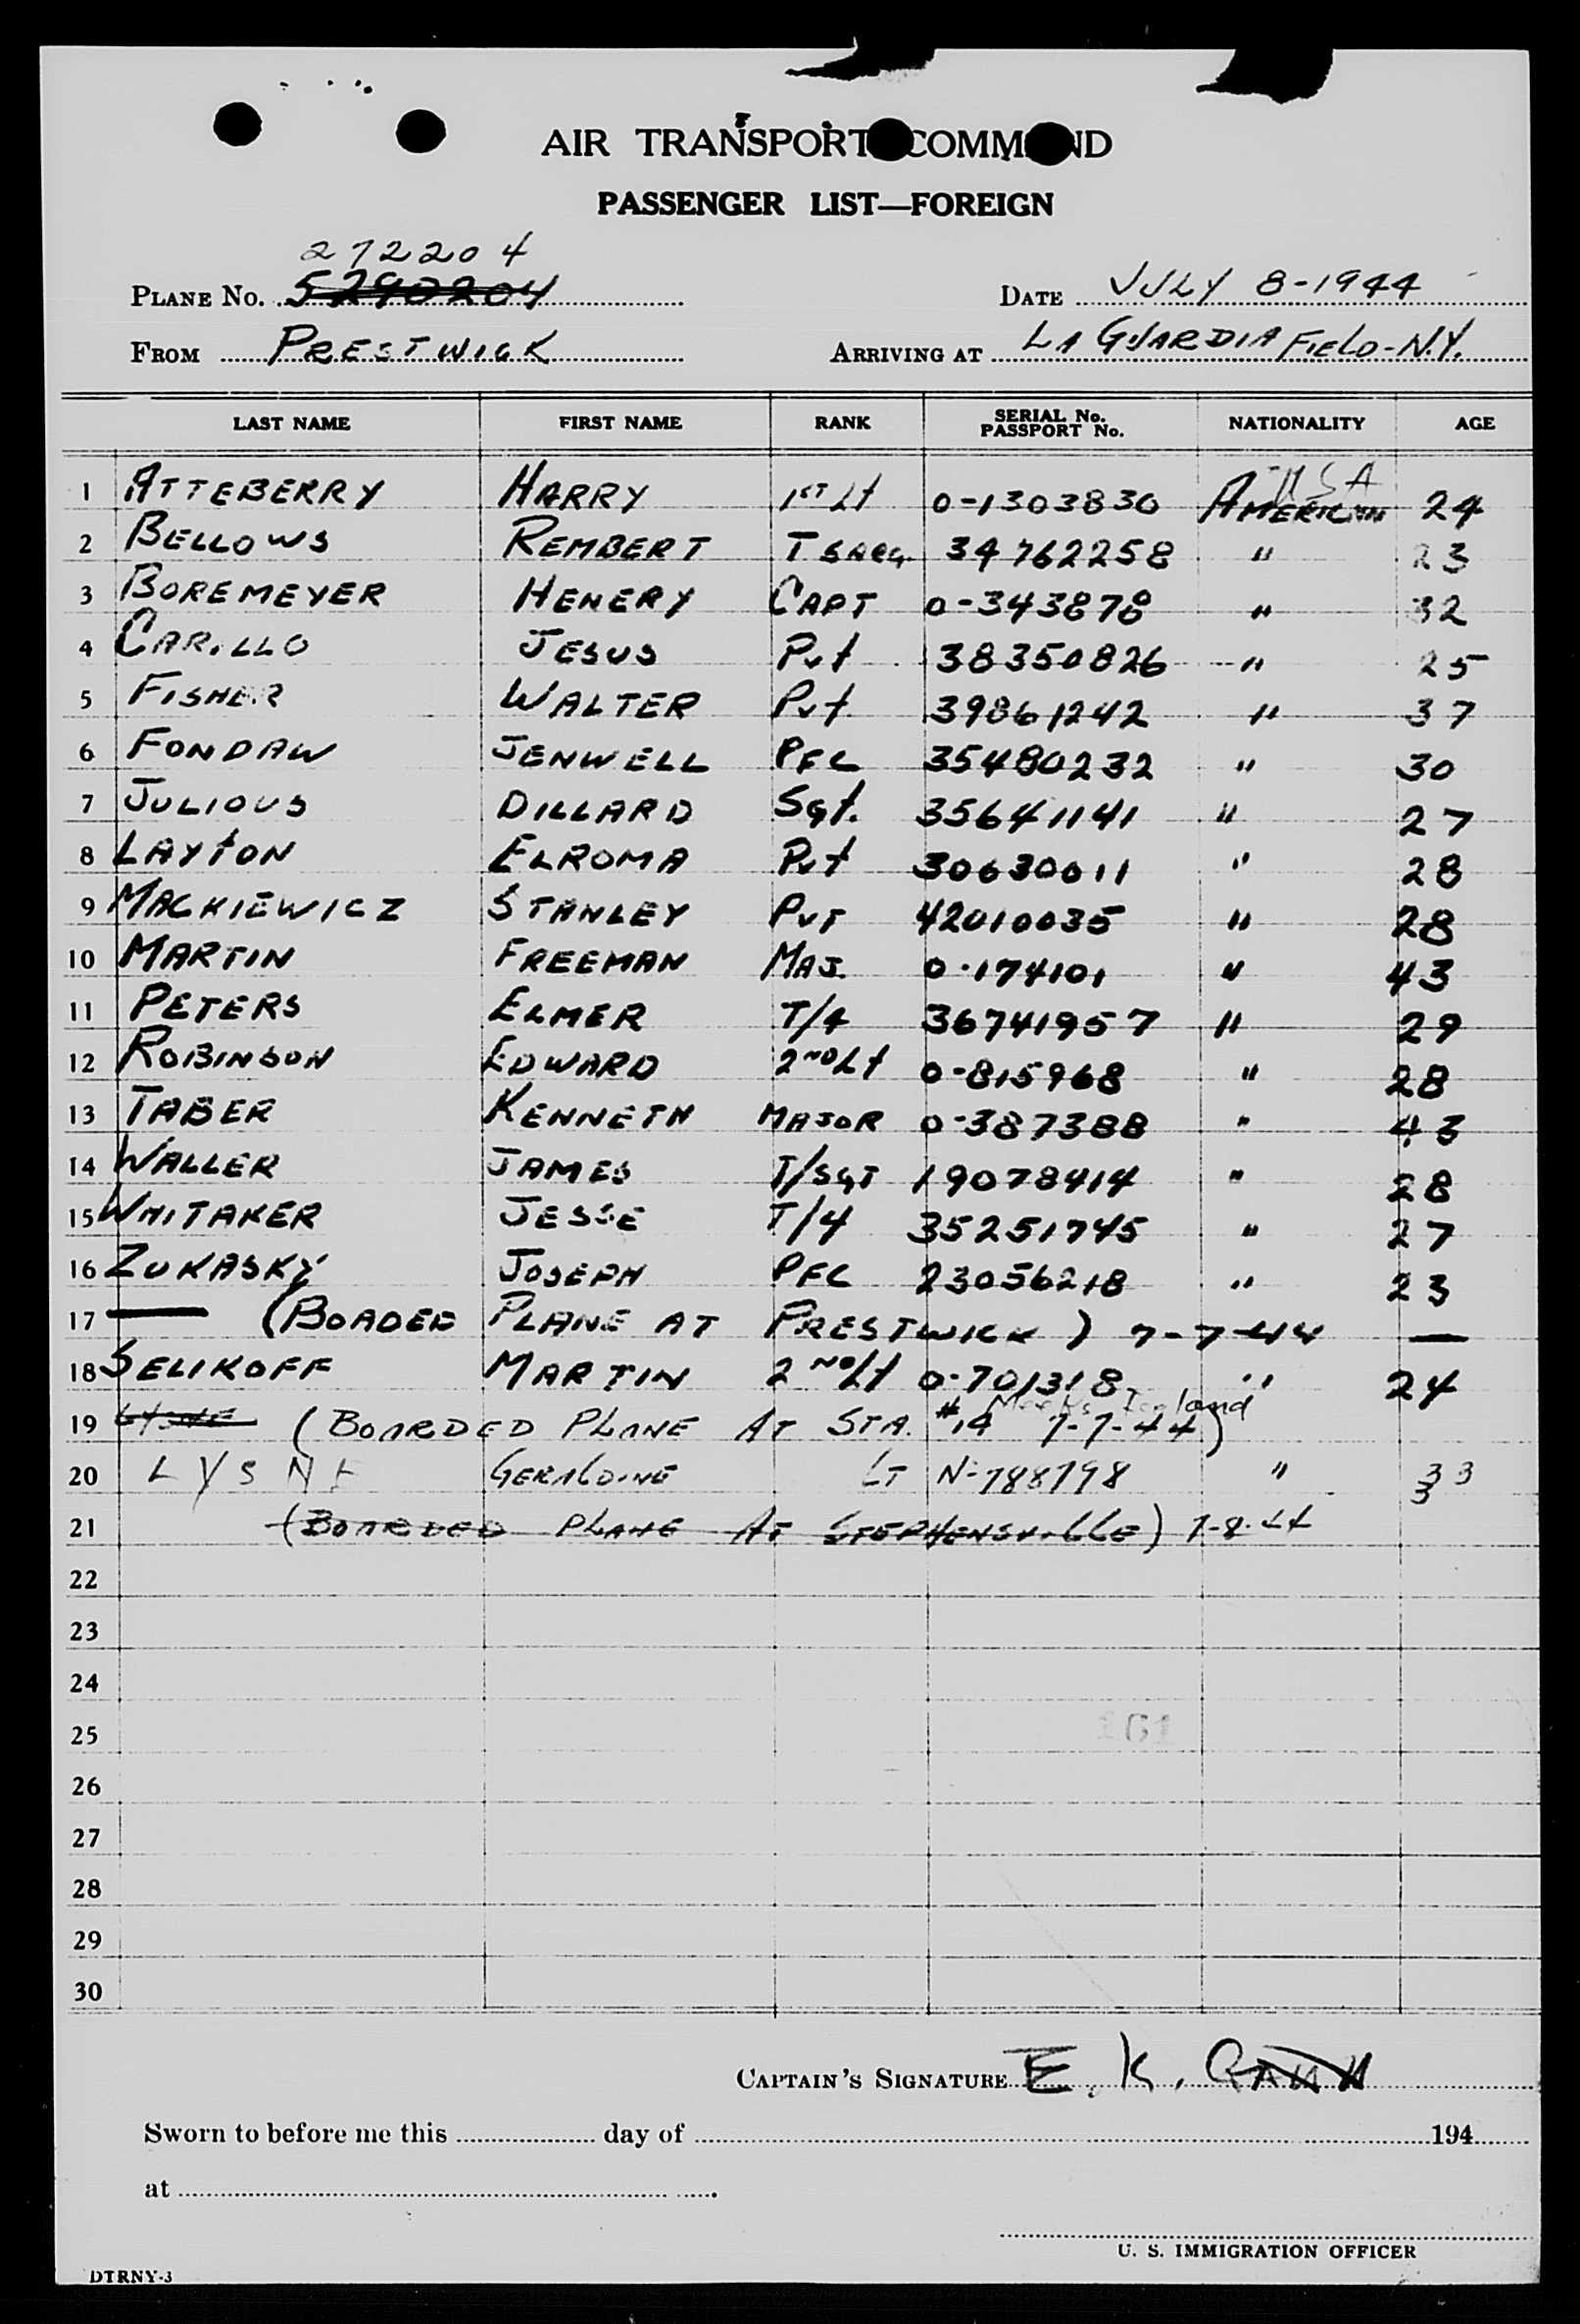 AIR TRANSPORT COMMAND
PASSENGER LIST—FOREIGN
272204
PLANE No. 5290204 DATE JULY 8-1944
FROM PRESTWICK ARRIVING AT LA GUARDIA FIELD-N.Y.
LAST NAME FIRST NAME RANK SERIAL No. PASSPORT No. NATIONALITY AGE
USA
1 ATTEBERRY HARRY 1ST Lt 0-1303830 AMERICAN 24
2 BELLOWS REMBERT T SARG. 34762258 " 23
3 BOREMEYER HENERY CAPT 0-343878 " 32
4 CARILLO JESUS Pvt 38350826 " 25
5 FISHER WALTER Pvt 39861242 " 37
6 FONDAW JENWELL PFC 35480232 " 30
7 JULIOUS DILLARD Sgt. 35641141 " 27
8 LAYTON ELROMA Pvt 30630011 " 28
9 MACKIEWICZ STANLEY PVT 42010035 " 28
10 MARTIN FREEMAN MAJ. 0-174101 " 43
11 PETERS ELMER T/4 36741957 " 29
12 ROBINSON EDWARD 2ND Lt 0-815968 " 28
13 TABER KENNETH MAJOR 0-387388 " 43
14 WALLER JAMES T/SGT 19078414 " 28
15 WHITAKER JESSE T/4 35251745 " 27
16 ZUKASKY JOSEPH PFC 23056218 " 23
17 — (BOADED PLANE AT PRESTWICK) 7-7-44 —
18 SELIKOFF MARTIN 2ND Lt 0-701318 " 24
Meeks Iceland
19 LYSNE (BOARDED PLANE AT STA. #14 7-7-44)
20 LYSNE GERALDINE LT N-788798 " 33
3
21 (BOARDED PLANE AT STEPHENSVILLE) 7-8-44
22
23
24
25
161
26
27
28
29
30
CAPTAIN'S SIGNATURE E. K. GANN
Sworn to before me this day of 194
at .
U. S. IMMIGRATION OFFICER
DTRNY-3